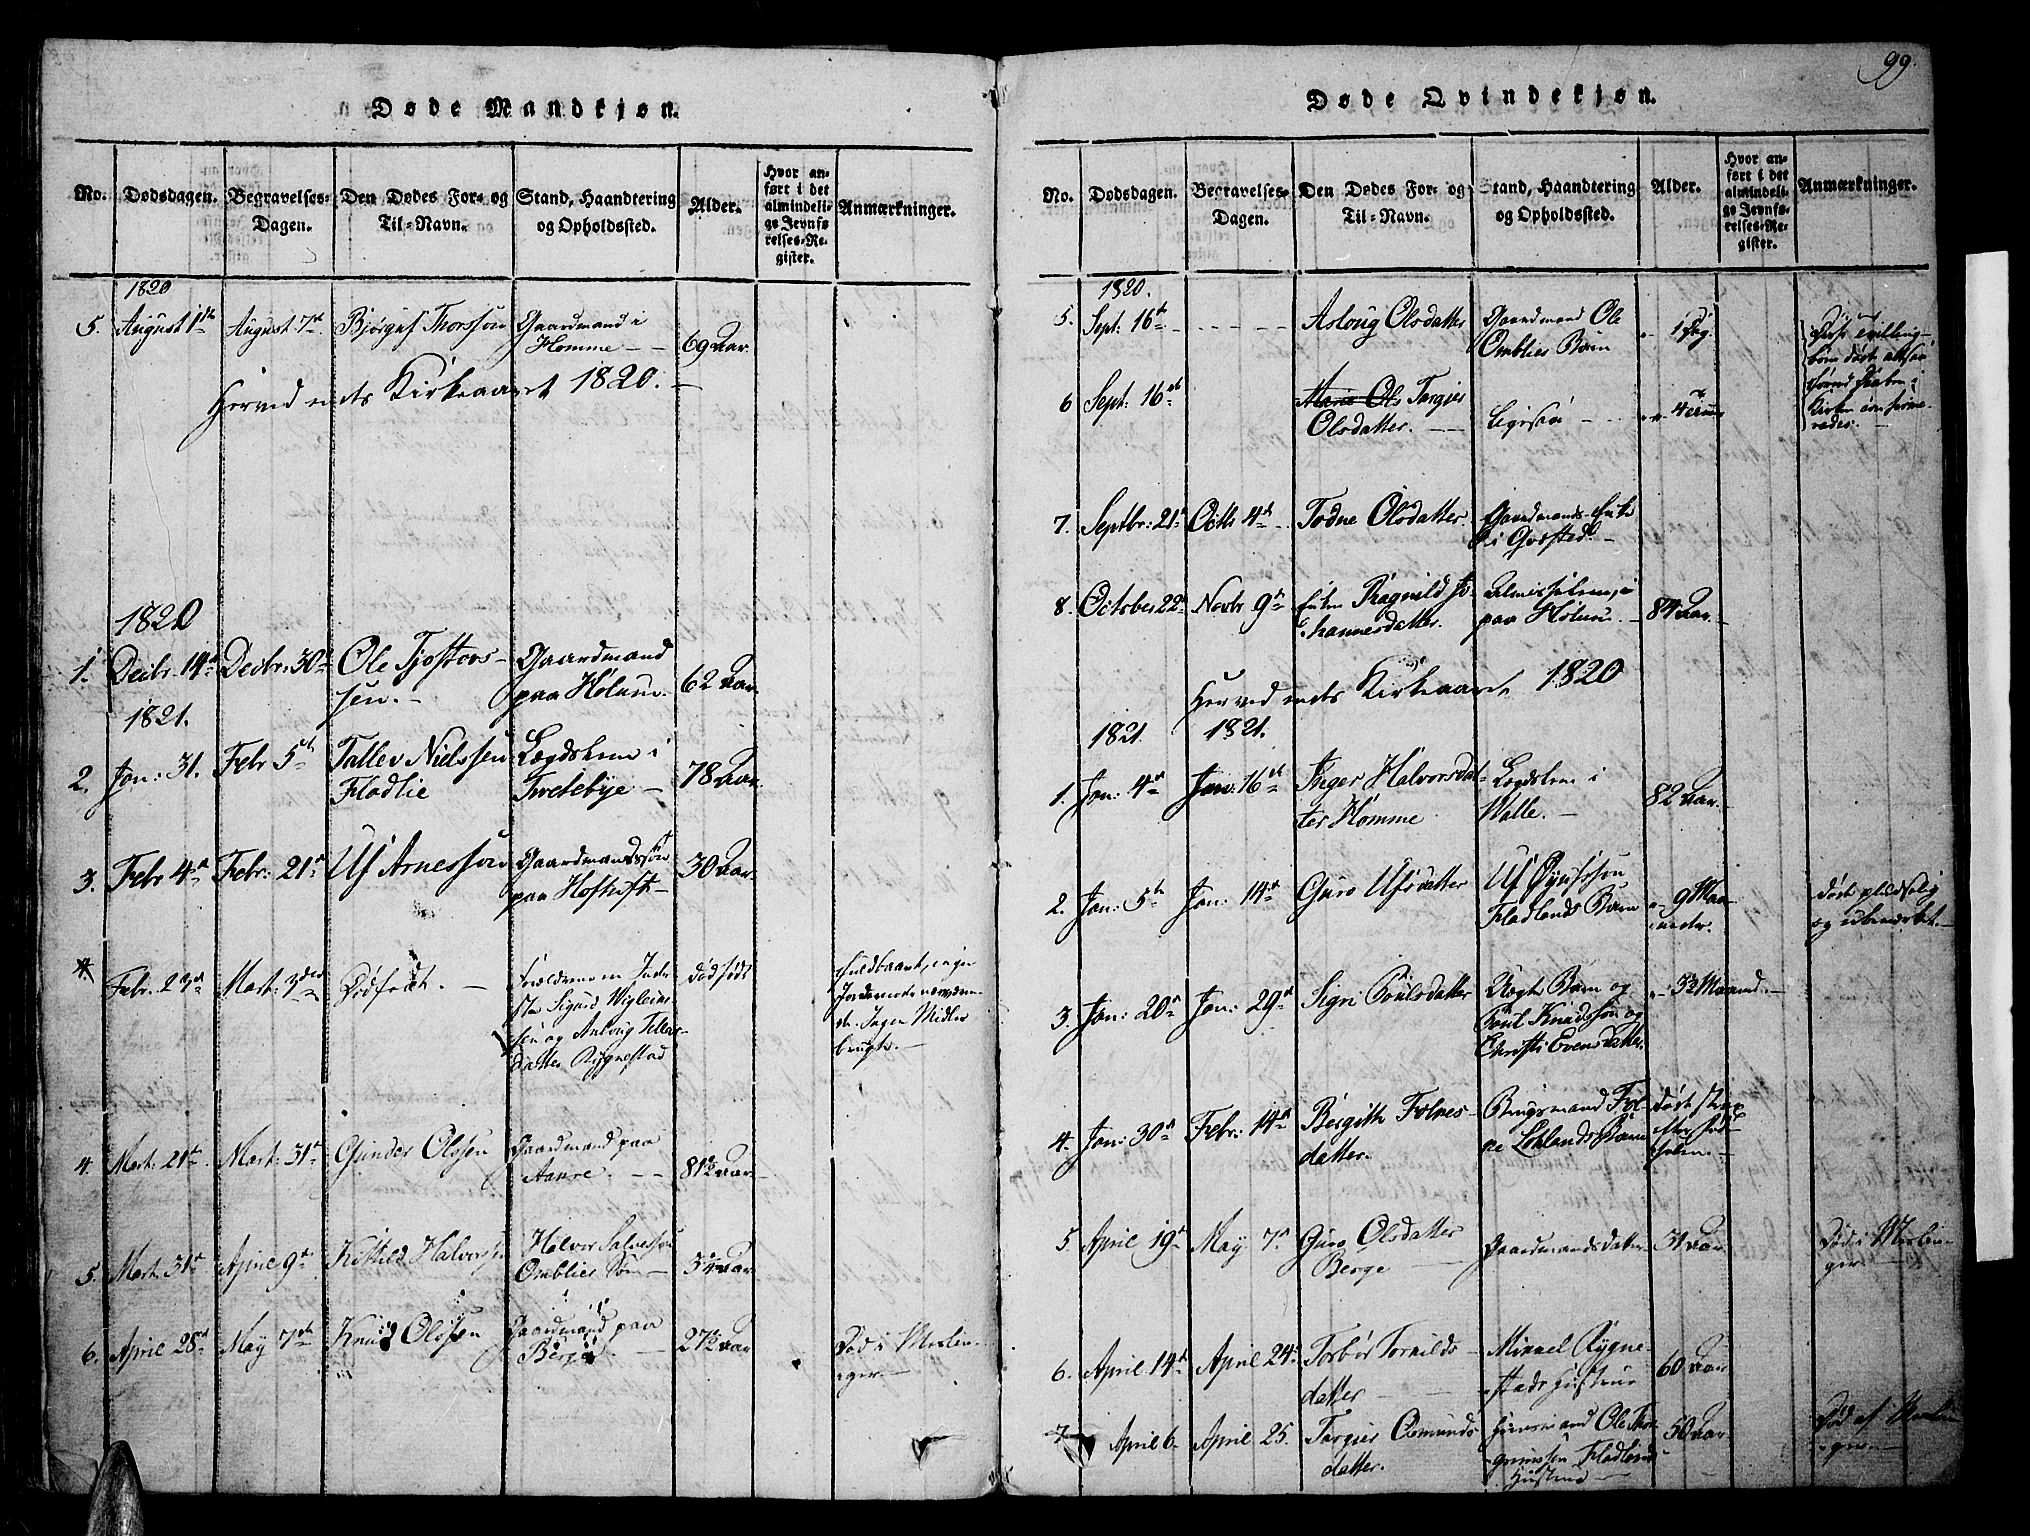 99.
Døde Mandkjøn.
No.
Dødsdagen.
Begravelses-
Dagen.
Den Dødes For- og
Til-Navn.
Stand, Haandtering
og Opholdssted.
Alder.
Hvor an-
ført i det
almindeli-
ge Jevnfø-
relses-Re-
gister.
Anmærkninger.
1820
5. August 1ste August 7de Bjørguf Thorsson Gaardmand i
Homme 69 Aar.
Herved endts Kirkeaaret 1820.
1820
1. Decbr. 14de Decbr: 30te Ole Tjostovs-
sen. Gaardmand
paa Holum. 62 Aar
1821.
2. Jan: 31. Febr 5te Tallev Nielssen
Fladlie Lægdslem i
Tveitebye 78 Aar.
3. Febr 4de Febr: 21de Uf Arnesson Gaardmandssøn
paa Hoftuft 30 Aar.
4.
Febr. 23de Mart: 3die Dødfødt. Forældrene ere Inder-
ste Sigurd Vigleiks-
sen og Anlaug Tellefs-
datter Rygnestad dødfødt Fuldbaaret, ingen
Jordemoder nærværen-
de. Ingen Midler
brugte.
4. Mart: 21de Mart: 31te Gunder Olssen Gaardmand paa
Aamre. 81½ Aar
5. Mart: 31te April 9de Kittild Halvorssen Halvor Salvessen
Omblies Søn 3¼ Aar
6. April 28de May 7de Knud Olssen Gaardmand paa
Berge 27½ Aar Død i Meslin-
ger.
Døde Qvindekjøn.
No.
Dødsdagen.
Begravelses-
Dagen.
Den Dødes For- og
Til-Navn.
Stand, Haandtering
og Opholdssted.
Alder.
Hvor an-
ført i det
almindeli-
ge Jevnfø-
relses-Re-
gister.
Anmærkninger.
1820.
5. Sept: 16de Aslaug Olsdatter Gaardmand Ole
Omblies Barn 1 Dag. Disse Tvilling-
børn døde
6 Sept: 16de Maris Ols Torgier
Olsdatter. Ligesaa
7. Septbr: 21de Octb 4de Todne Olsdatter Gaardmands-Enke
i Qvæsted.
8. October 22de Novbr 9de Enken Ragnild Jo-
hannesdatter. Almisselem
paa Holum 84 Aar.
Herved endts Kirkeaaret 1820
1821 1821.
1. Jan: 4de Jan: 16de Inger Halvorsdat-
ter Homme Lægdslem i
Walle. 82 Aar.
2. Jan: 5te Jan: 14de Guro Ufsdatter Uf Øyufssøn
Fladlands Barn 9 Maa-
neder. Døde pludselig
og ubemærket.
3. Jan: 20de Jan: 29de Sigri Poulsdatter Uægte Barn og
Poul Knudssøn og
Christi Evensdatter. 3½ Maaned.
4. Jan: 30te Febr: 14de Bergith Folves-
datter. Brugsmand Fol-
ve Løklands Barn Døde strax
efter Fød-
selen.
5. April 19de May 7de Guro Olsdatter
Berge Gaardmandsdatter 31 Aar Død i Meslin-
ger.
6. April 14de April 24de Torbør Tornilds-
datter Mikkel Rygne-
stads Hustrue 60 Aar
7. April 6 April 25. Torgier Osmunds-
datter. Huusmand Ole Thor-
grimssen Fladlands
Hustrue 50 Aar Død af Meslin-
ger.